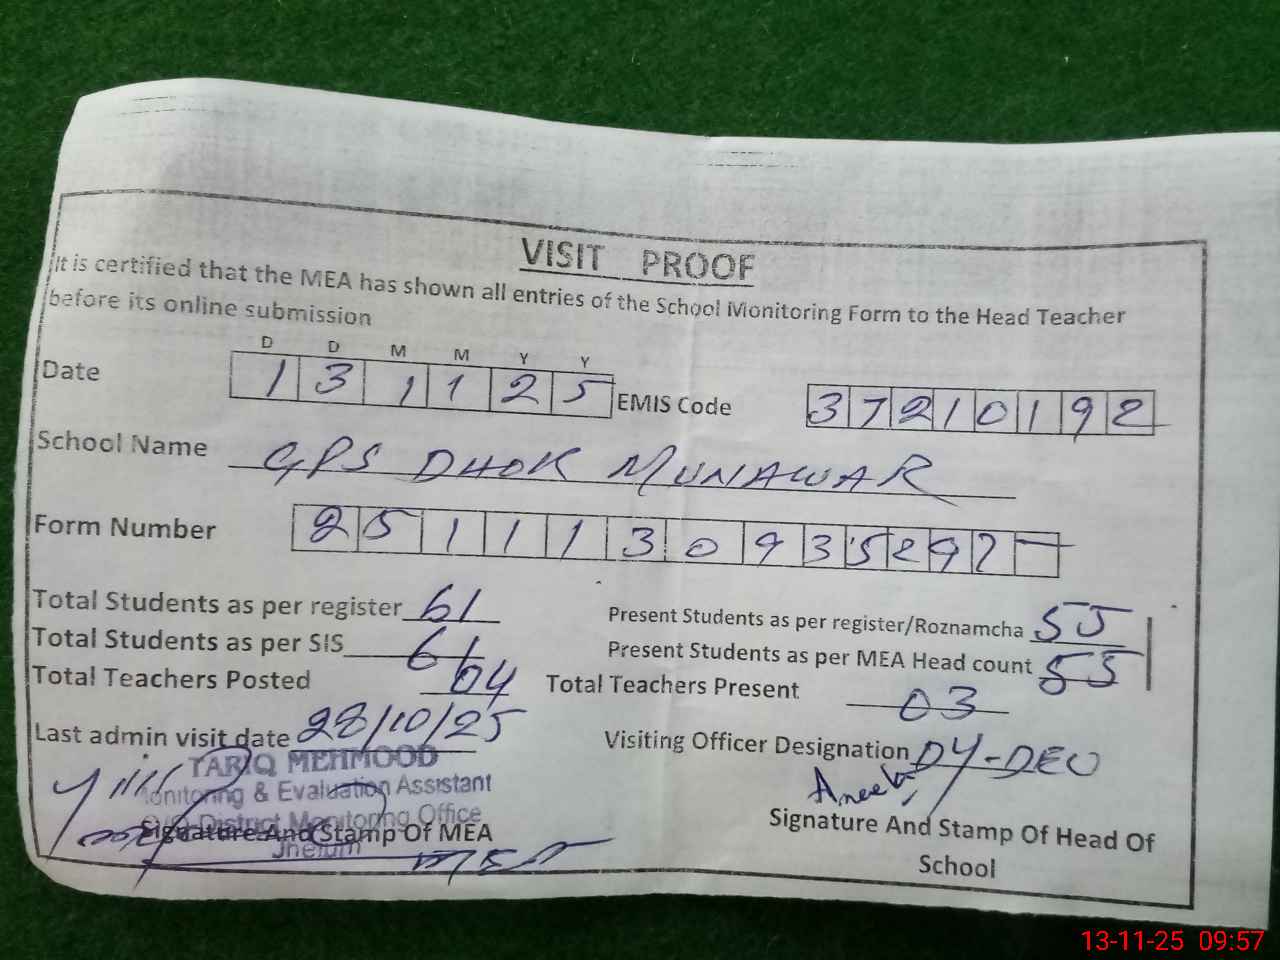 VISIT PROOF
It is certified that the MEA has shown all entries of the School Monitoring Form to the Head Teacher
before its online submission
D D M M Y Y
Date 1 3 1 1 2 5 EMIS Code 3 7 2 1 0 1 9 2
School Name GPS DHOK MUNAWAR
Form Number 2 5 1 1 1 3 0 9 3 5 2 9 7 -
Total Students as per register 61 Present Students as per register/Roznamcha 55
Total Students as per SIS 61 Present Students as per MEA Head count 55
Total Teachers Posted 04 Total Teachers Present 03
Last admin visit date 28/10/25 Visiting Officer Designation DY-DEO
TARIQ MEHMOOD
Monitoring & Evaluation Assistant
O/O District Monitoring Office
Jhelum
Signature And Stamp Of MEA
MEA
Signature And Stamp Of Head Of
School
13-11-25 09:57